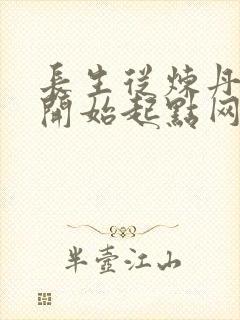 長生從煉丹
開始起點网
半壺江山